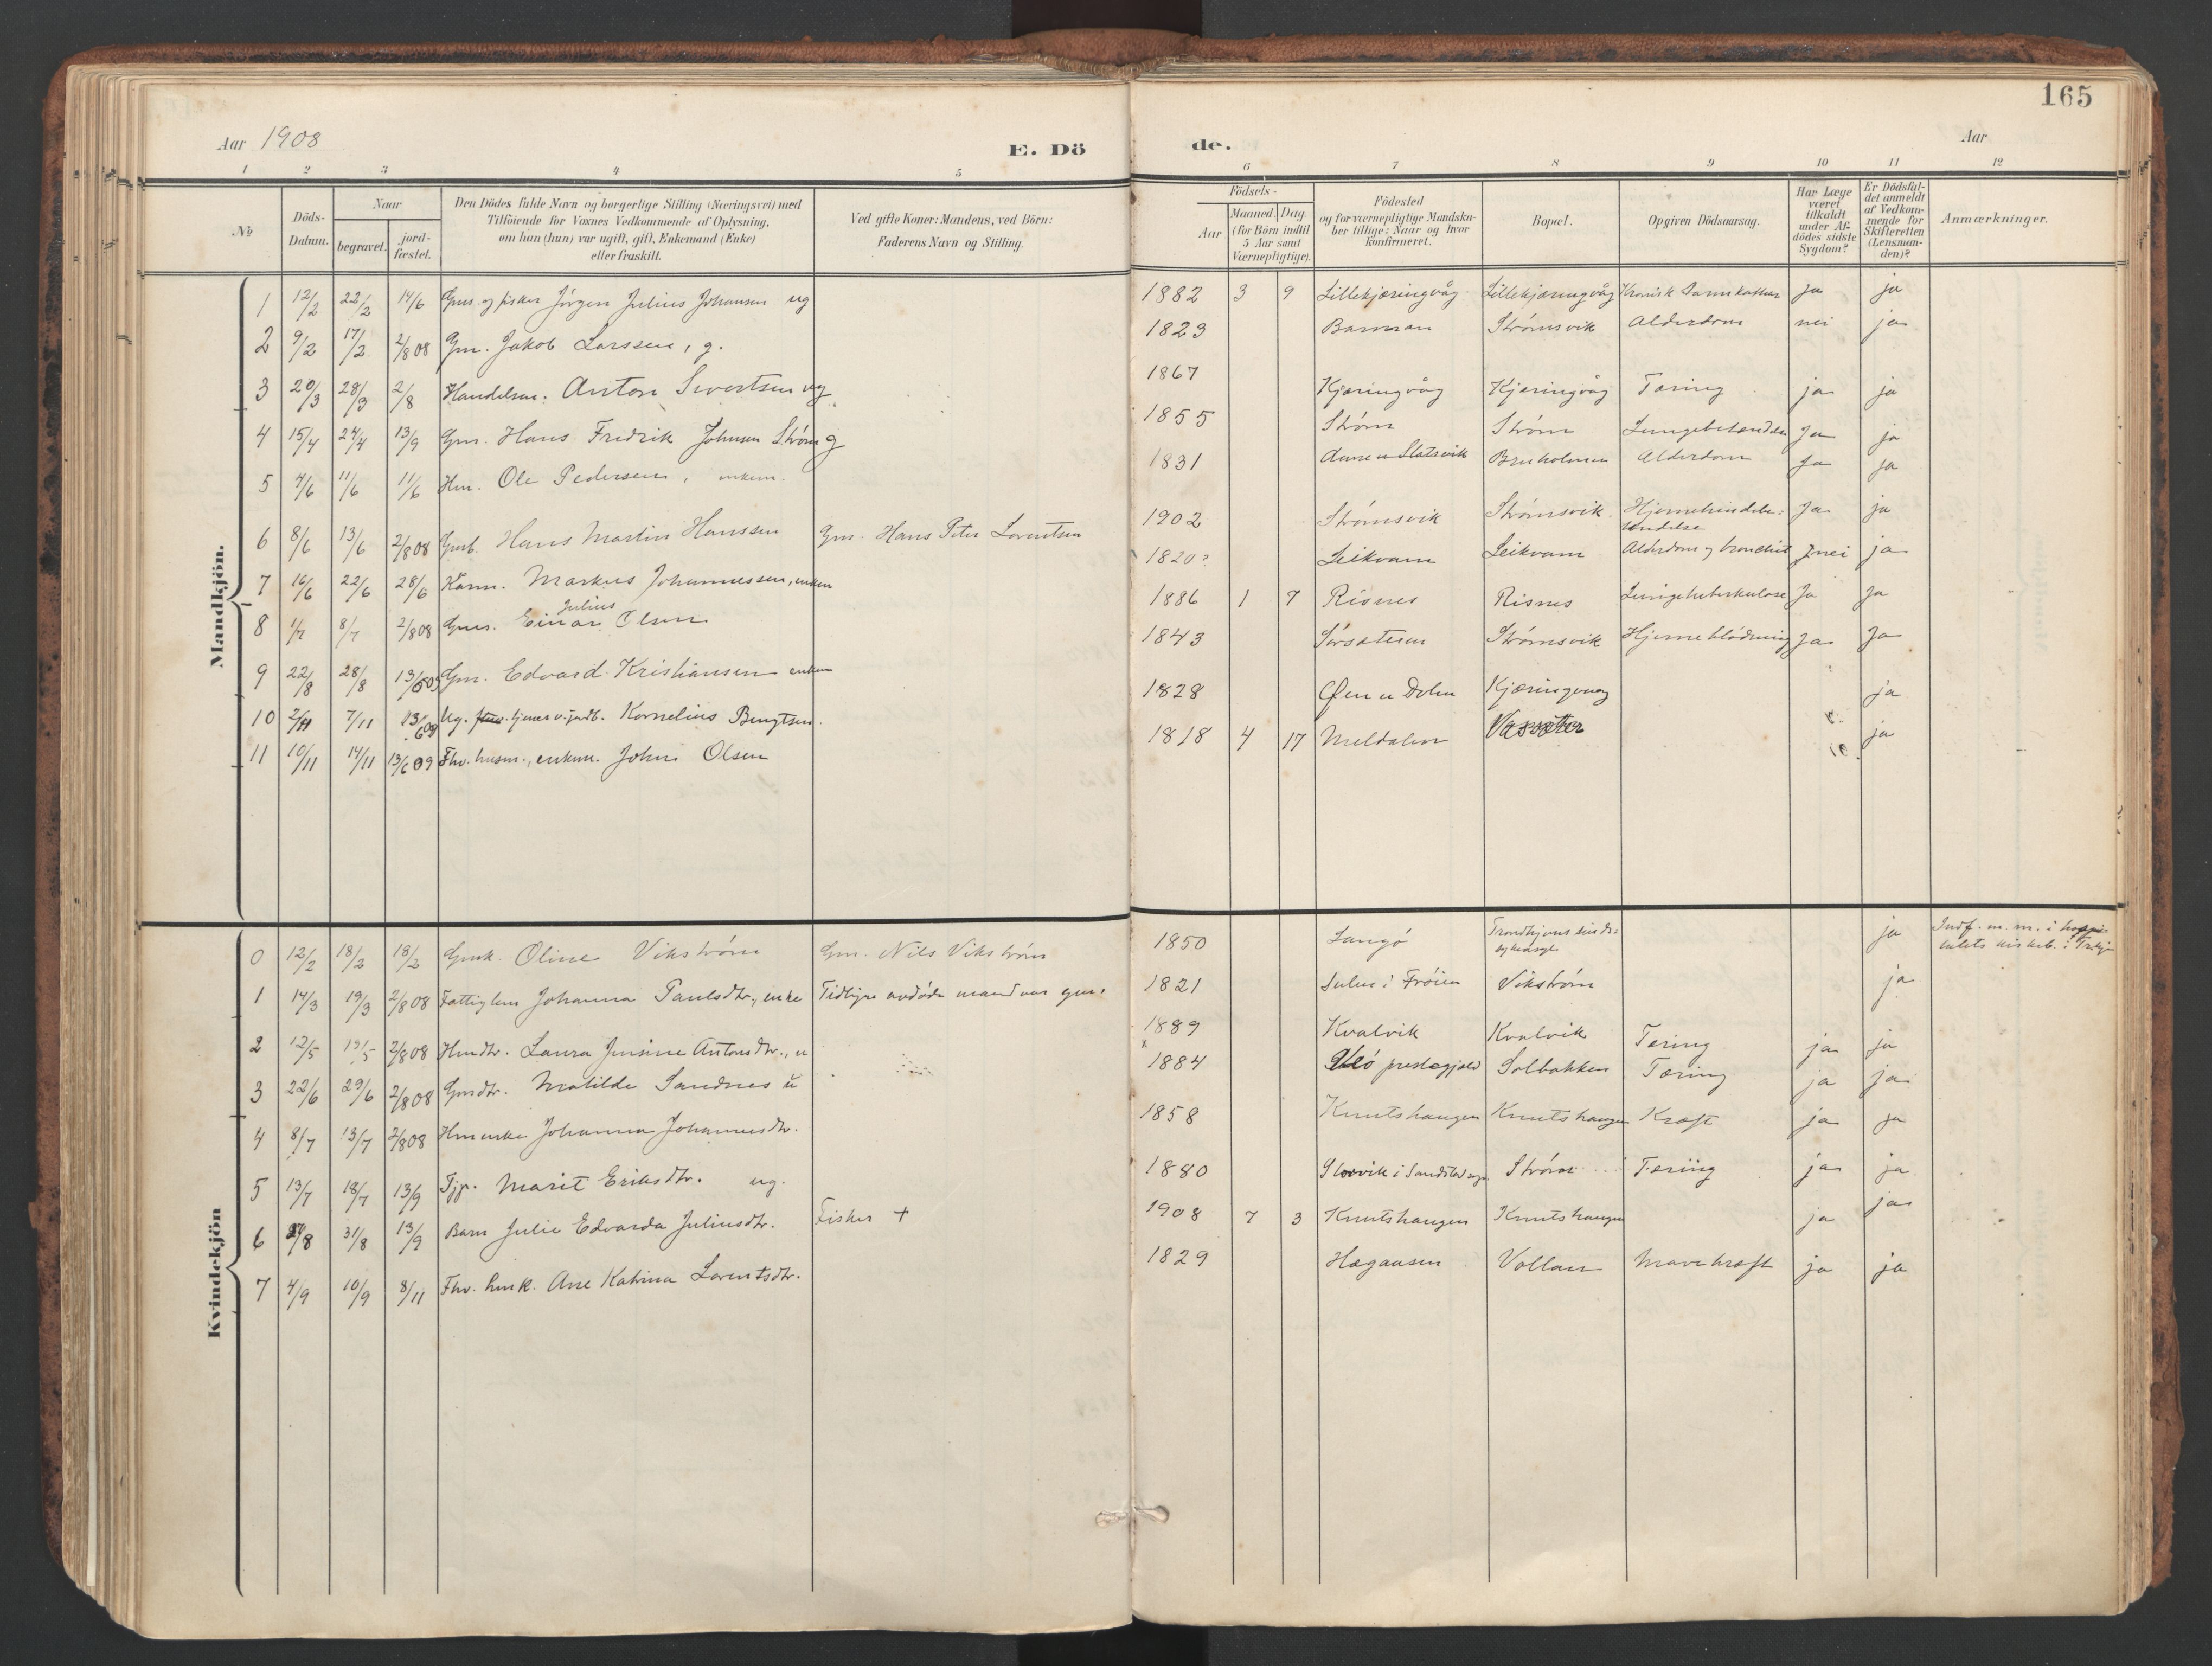 165
Aar 1908
E. Dö
de.
Aar
1 2 3 4 5 6 7 8 9 10 11 12
№
Döds-Datum.
Naar
begravet.
jord-fæstet.
Den Dödes fulde Navn og borgerlige Stilling (Næringsvei) med
Tilföiende for Voxnes Vedkommende af Oplysning,
om han (hun) var ugift, gift, Enkemand (Enke)
eller fraskilt.
Ved gifte Koner: Mandens, ved Börn:
Faderens Navn og Stilling.
Födsels-
Aar
Maaned. Dag
(for Börn indtil
5 Aar samt
Værnepligtige).
Födested
og for værnepligtige Mandska-
ber tillige: Naar og hvor
konfirmeret.
Bopæl.
Opgiven Dödsaarsag.
Har Læge
været
tilkaldt
under Af-
dödes sidste
Sygdom?
Er Dödsfal-
det anmeldt
af Vedkom-
mende for
Skifteretten
(Lensman-
den)?
Anmærkninger.
Mandkjön.
1 12/2 22/2 14/6 Gms. og fisker Jörgen Julius Johansen ug 1882 3 9 Lillekjæringvåg Lillekjæringvåg Kronisk ja ja
2 9/2 17/2 2/8 08 Gm. Jakob Larssen, g. 1823 Barman Strömsvik Alderdom nei ja
3 20/3 28/3 2/8 Handelsm. Anton Sivertsen ug 1867 Kjæringvåg Kjæringvåg Tæring ja ja
4 15/4 24/4 13/9 Gm. Hans Fredrik Johnsen Ström g 1855 Ström Ström Lungebetændelse Ja ja
5 4/6 11/6 11/6 Hm. Ole Pedersen, enkem. 1831 Slatsvik Bruholmen Alderdom Ja ja
6 8/6 13/6 2/8 08 Gmb. Hans Martin Hanssen Gm. Hans Peter Lorentsen 1902 Strömsvik Strömsvik Hjernehindebe-
tendelse Ja ja
7 16/6 22/6 28/6 Kårm. Markus Johannessen, enkem 1820? Leikvam Leikvam Alderdom og bronchit nei ja
8 1/7 8/7 2/8 08 Gms. Einar Julius Olsen 1886 1 7 Risnes Risnes Lungetuberkulose Ja Ja
9 22/8 28/8 13/6 09 Gm. Edvard Kristiansen enkem 1843 Sörsæteren Strömsvik Hjerneblödning Ja Ja
10 2/11 7/11 13/6 09 Ug. tjener v. jordb. Kornelius Bengtsen. 1828 Öen u Dolm Kjæringvaag ja
11 10/11 14/11 13/6 09 Fhv. husm., enkem. John Olsen 1818 4 17 Meldalen Vasæter ja
Kvindekjön
0 12/2 18/2 18/2 Gmk. Oline Vikström Gm. Nils Vikström 1850 Langö Trondhjems sinds-
sygeasyl ja Indf. m. m. i hospi-
talets kirkeb. i Trhjm
1 14/3 19/3 2/8 08 Fattiglem Johanna Paulsdtr., enke Tidligre avdöde mand var gm. 1821 Sulen i Fröien Vikström ja
2 12/5 19/5 2/8 08 Hmdtr. Laura Jensine Antonsdtr., u 1889 Kvalvik Kvalvik Tæring ja ja
3 22/6 29/6 2/8 08 Gmdtr. Matilde Sandnes u 1884 prestegjæld Solbakken Tæring ja ja
4 8/7 13/7 2/8 08 Hmenke Johanna Johannesdtr. 1858 Knutshaugen Knutshaugen Kræft ja ja
5 13/7 18/7 13/9 Tjp. Marit Eriksdtr. ug. 1880 Storvik i Sandstad sogn Ström Tæring ja ja
6 27/8 31/8 13/9 Barn Julie Edvarda Juliusdtr. Fisker + 1908 7 3 Knutshaugen Knutshaugen ja ja
7 4/9 10/9 8/11 Fhv. hmk. Ane Katrina Lorentsdtr. 1829 Hægaasen Vollan Mavekræft ja ja